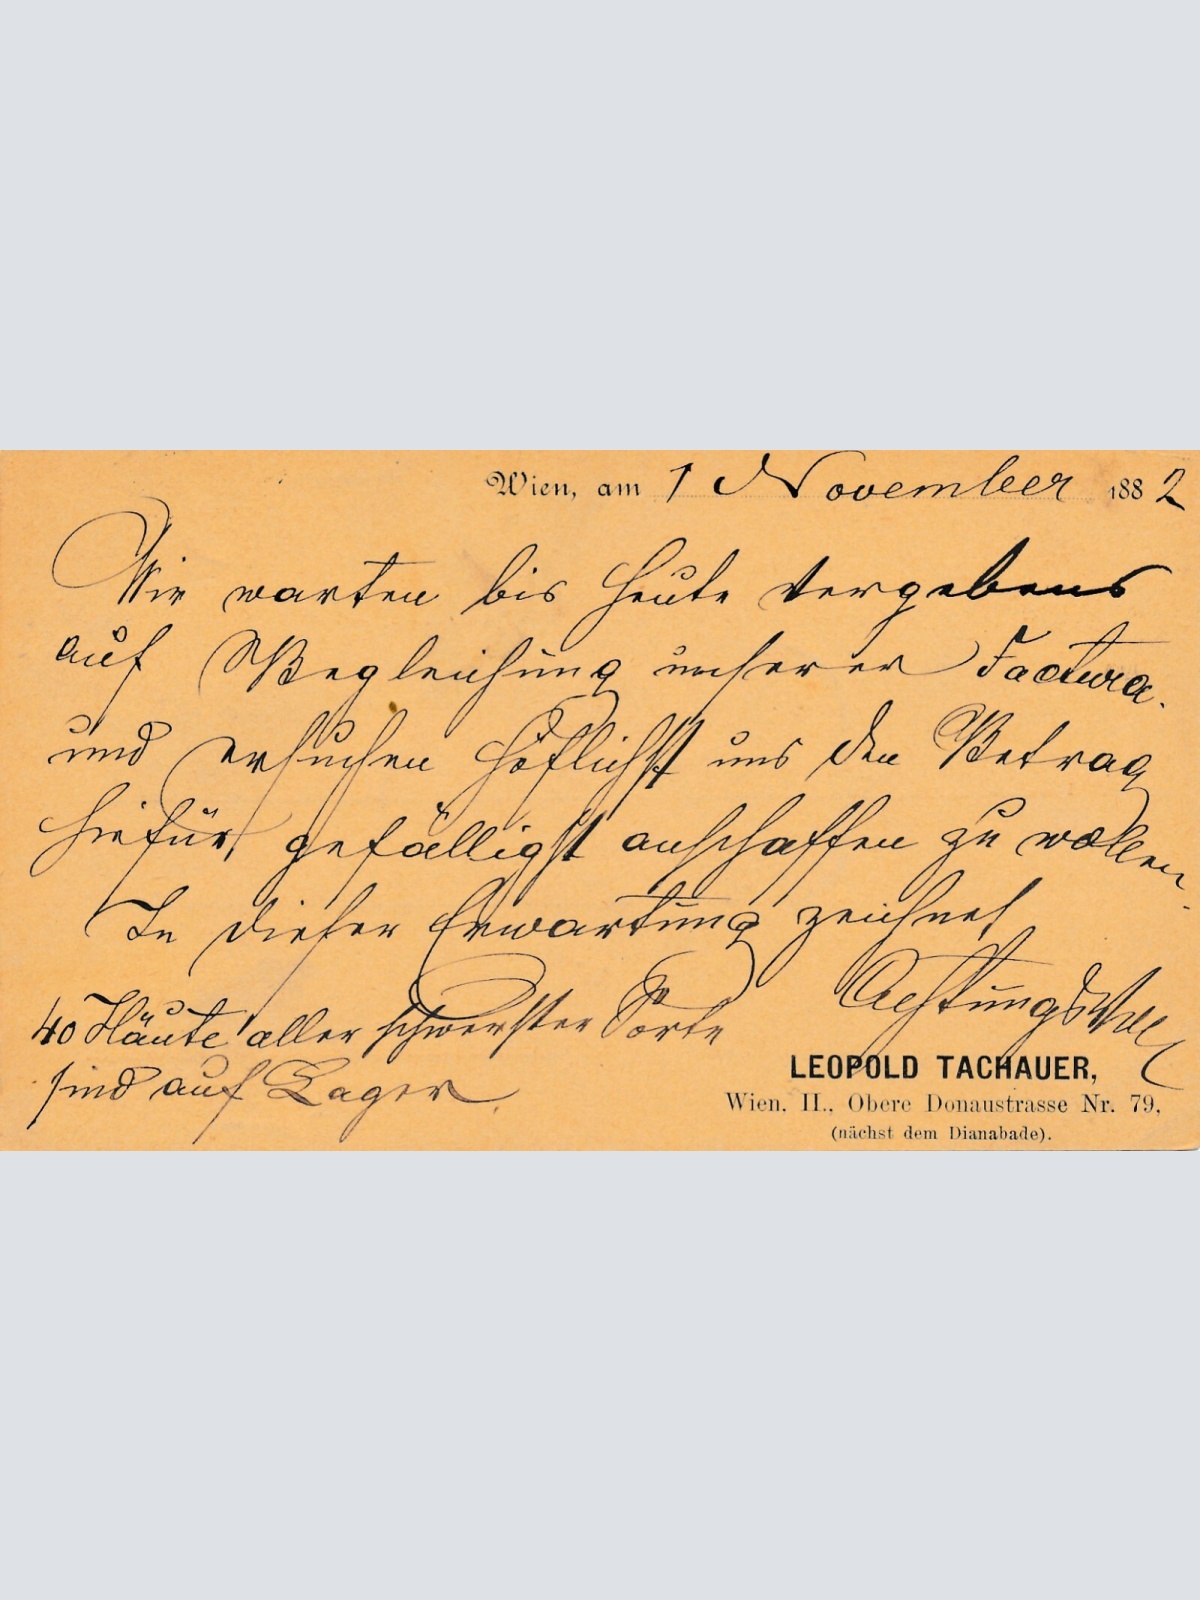 Wien, am 1 November 1882
Wir warten bis heute vergebens
auf Begleichung unserer Factura.
und ersuchen höflichst uns den Betrag
hiefür gefälligst anschaffen zu wollen.
In dieser Erwartung zeichnet
Achtungsvoll
40 Häute aller schwerster Sorte
sind auf Lager.
LEOPOLD TACHAUER,
Wien, II., Obere Donaustrasse Nr. 79,
(nächst dem Dianabade).